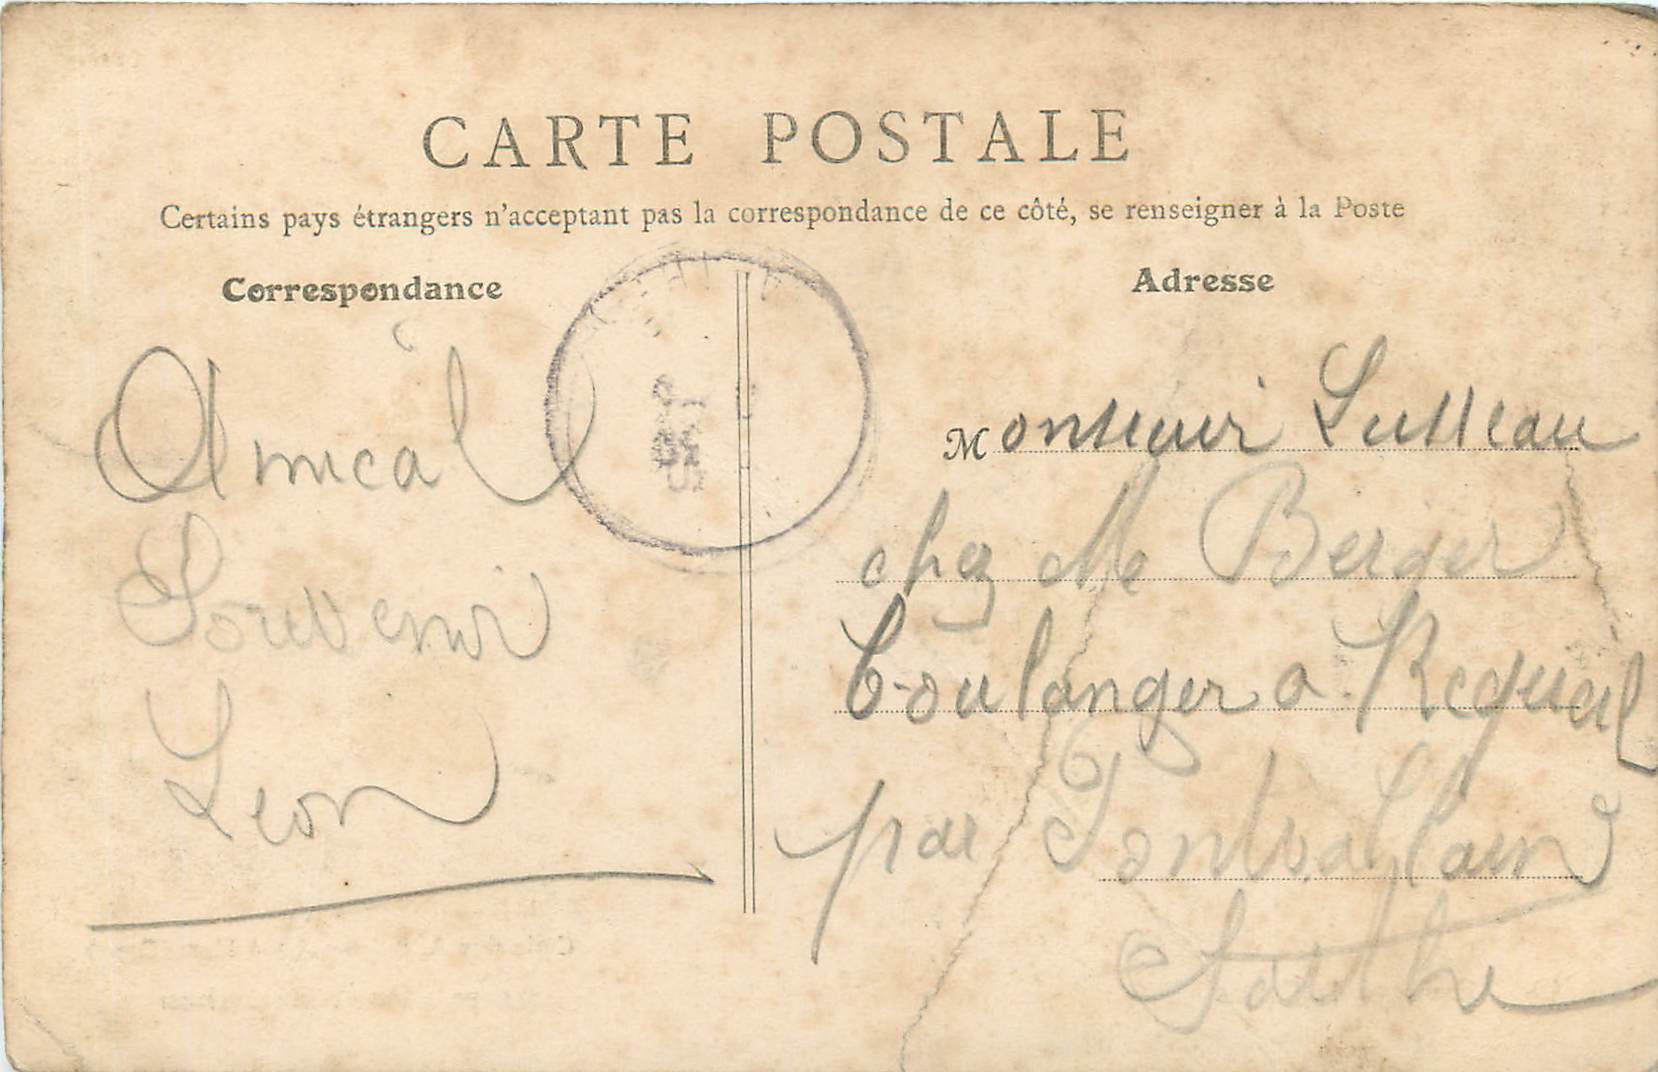 CARTE POSTALE
Certains pays étrangers n'acceptant pas la correspondance de ce côté, se renseigner à la Poste
Correspondance
Adresse
Amical
Souvenir
Léon
Monsieuir Lusseau
chez M Berger
boulanger a Requeil
par Pontvallain
Sarthe